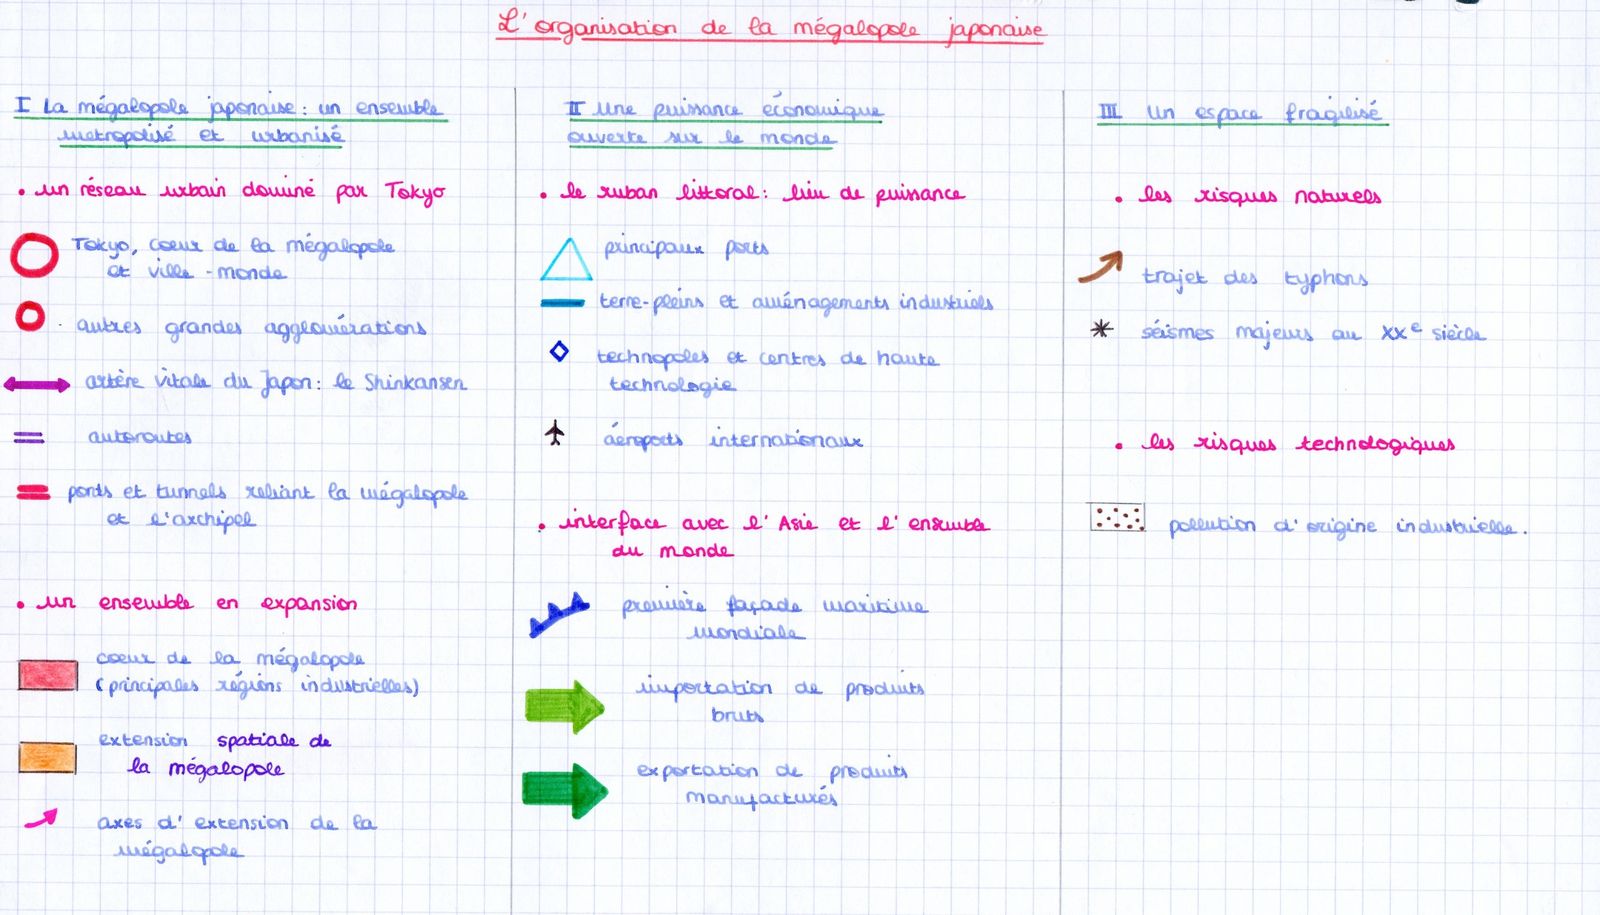 L'organisation de la mégalopole japonaise
I La mégalopole japonaise : un ensemble
métropolisé et urbanisé
• un réseau urbain dominé par Tokyo
Tokyo, cœur de la mégalopole
et ville-monde
autres grandes agglomérations
artère vitale du Japon : le Shinkansen
autoroutes
ponts et tunnels reliant la mégalopole
et l'archipel
• un ensemble en expansion
cœur de la mégalopole
(principales régions industrielles)
extension spatiale de
la mégalopole
axes d'extension de la
mégalopole
II Une puissance économique
ouverte sur le monde
• le ruban littoral : lieu de puissance
principaux ports
terre-pleins et aménagements industriels
technopoles et centres de haute
technologie
áeroports internationaux
• interface avec l'Asie et l'ensemble
du monde
première façade maritime
mondiale
importation de produits
bruts
exportation de produits
manufacturés
III Un espace fragilisé
• les risques naturels
trajet des typhons
séismes majeurs au XXe siècle
• les risques technologiques
pollution d'origine industrielle.